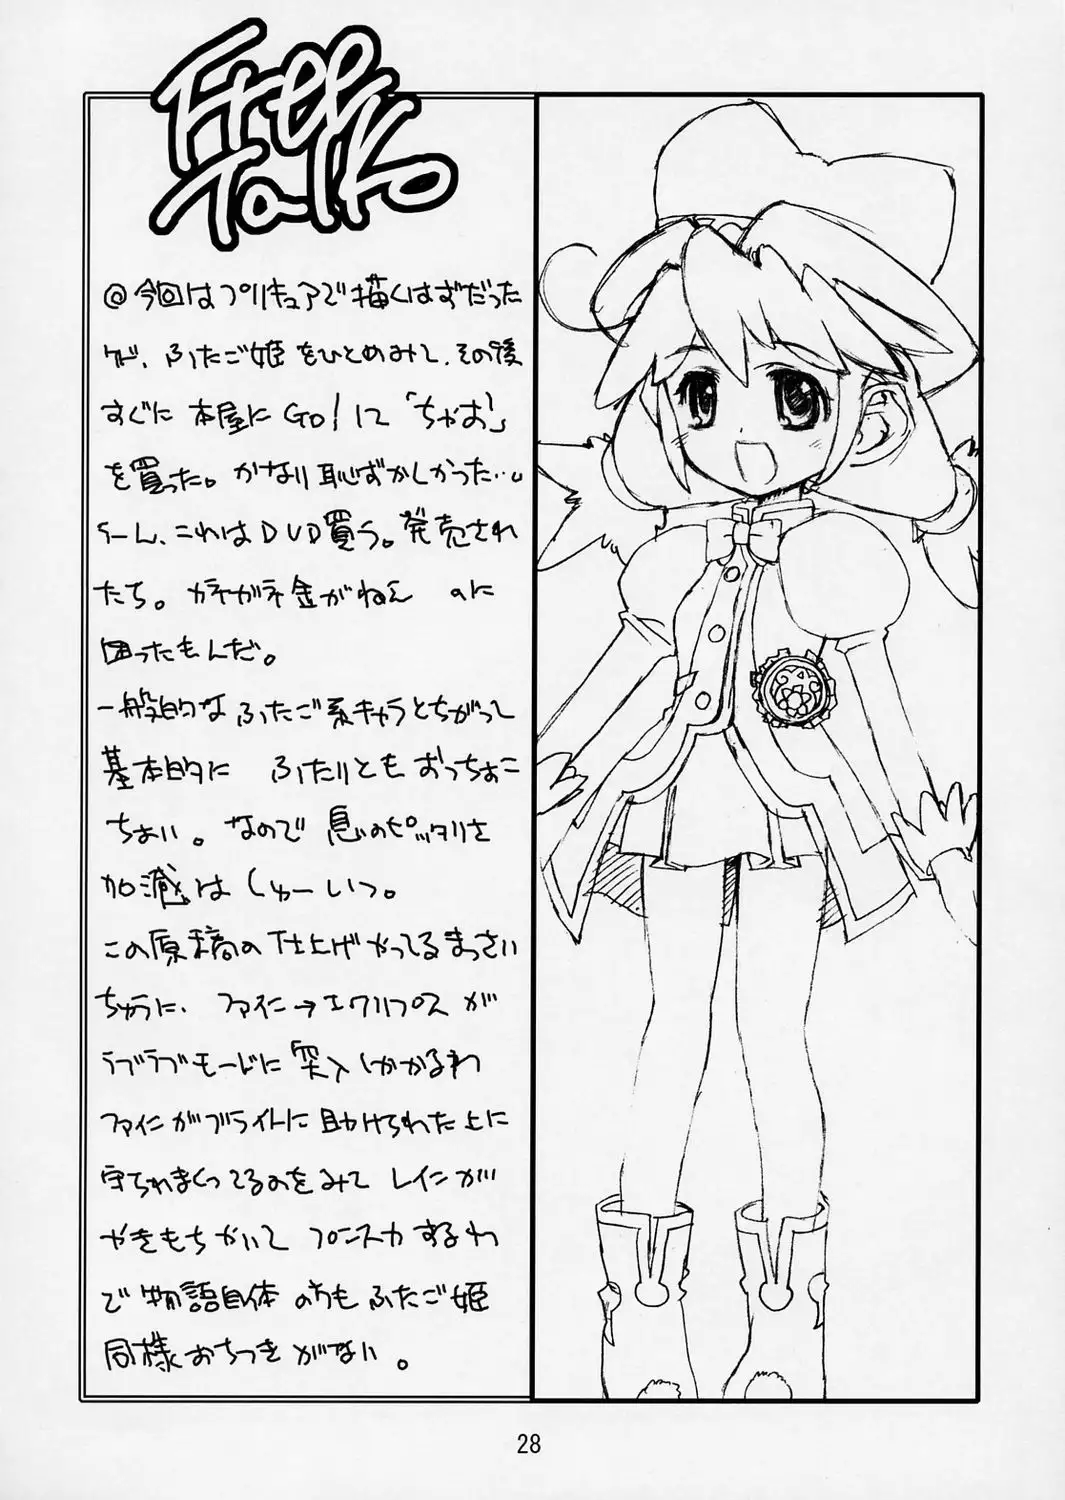 Free
Talk
@今回はプリキュアで描くはずだった
ケド、ふたご姫をひとめみて、その後
すぐに本屋にGO!して「ちゃお」
を買った。かなり恥ずかしかった…。
うーん、これはDVD買う。発売され
たち。ガネガネ金がねえ のに
困ったもんだ。
一般的なふたご系キャラとちがって
基本的に ふたりともおっちょこ
ちょい。なので息のピッタリさ
加減はしゅーいつ。
この原稿の仕上げやってるまっさい
ちゅうに、ファイン→エクリプスが
ラブラブモードに突入しかかるわ
ファインがブライトに助けられた上に
守られまくってるのをみてレインが
やきもちやいてプンスカするわ
で物語自体のほうもふたご姫
同様おちつきがない。
28